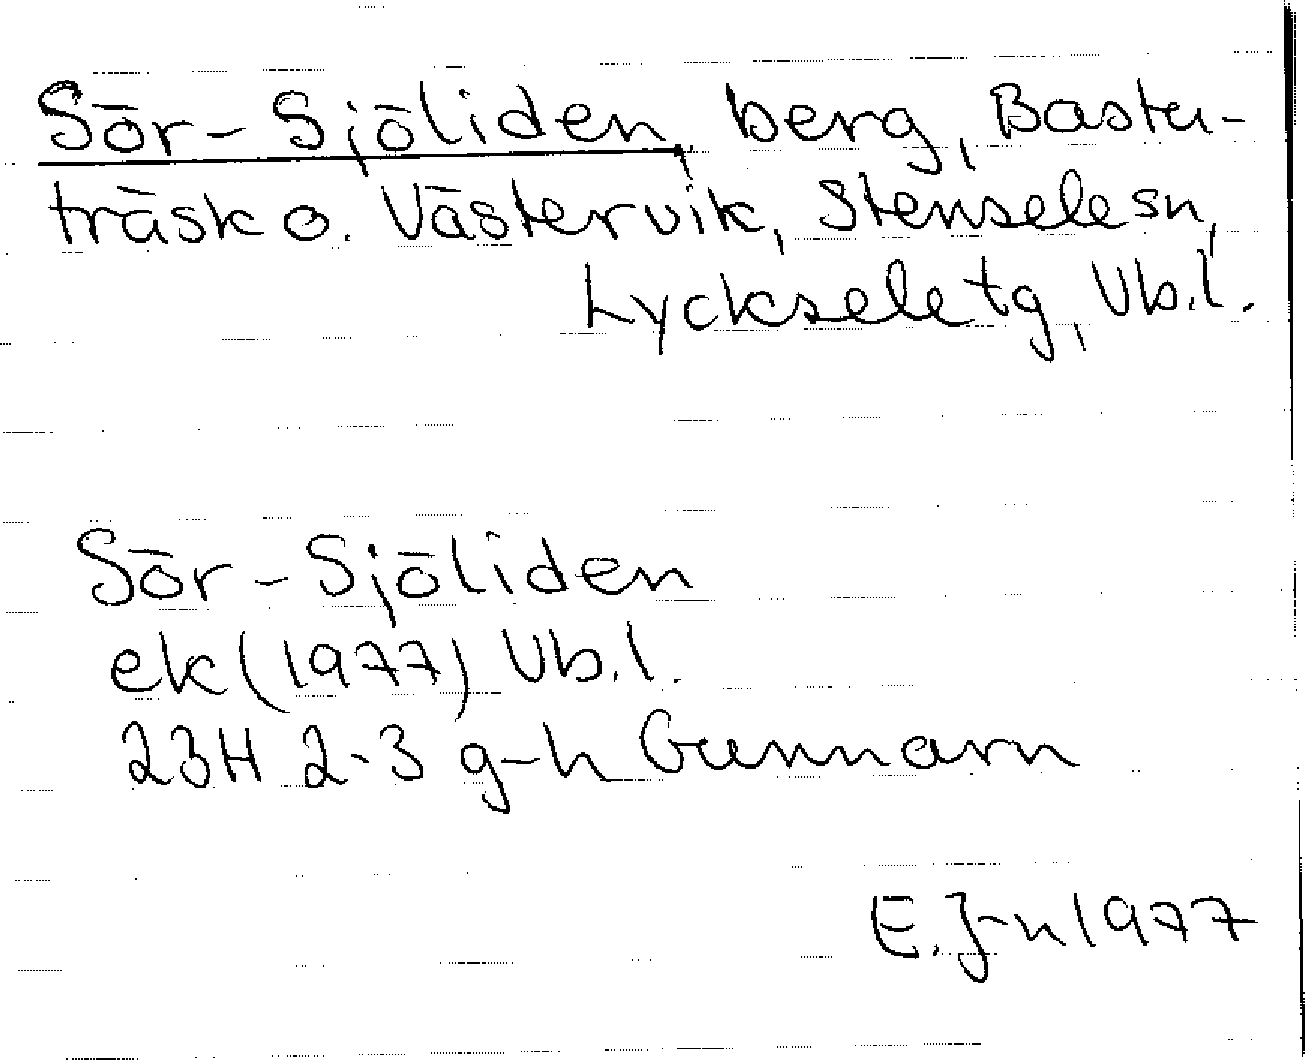 Sör-Sjöliden, berg, Bastu-
träsk o. Västervik, Stensele sn,
Lycksele tg, Vb.l.
Sör-Sjöliden
ek (1977) Vb.l.
23H 2-3 g-h Gunnarn
E.J-n 1977